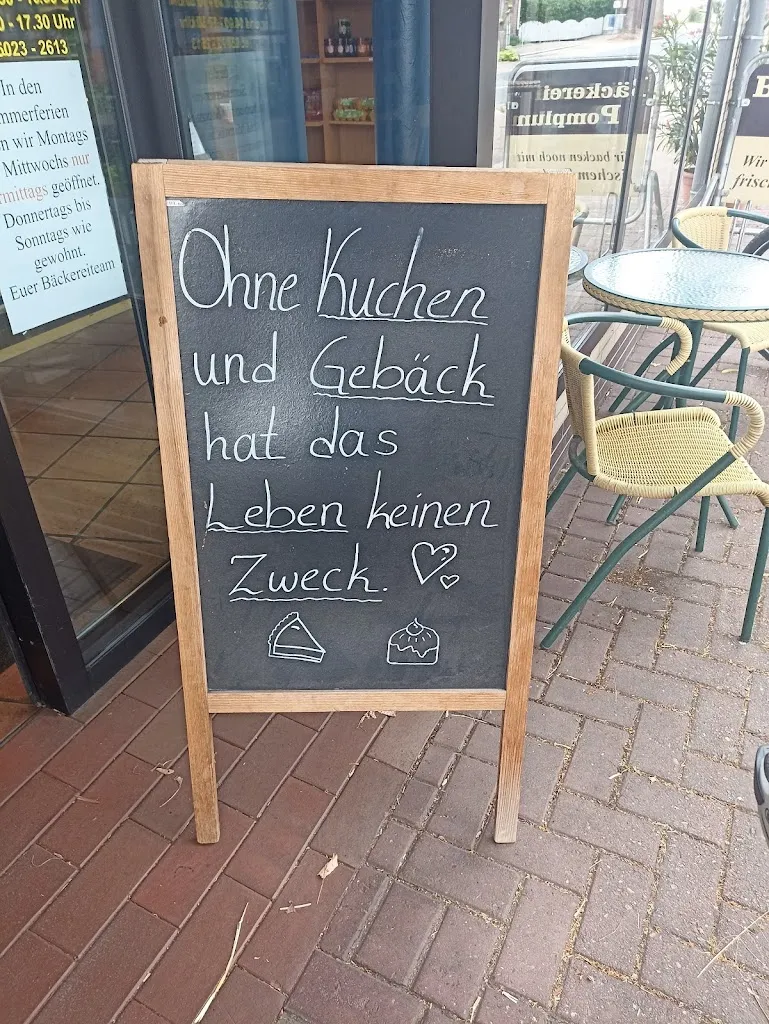 17.30 Uhr
6023 - 2613
In den
mmerferien
wir Montags
Mittwochs nur
rmittags geöffnet.
Donnertags bis
Sonntags wie
gewohnt.
Euer Bäckereiteam
Bäckerei
Pomplun
ir backen noch mit
Wir
frisch
Ohne Kuchen
und Gebäck
hat das
Leben keinen
Zweck.